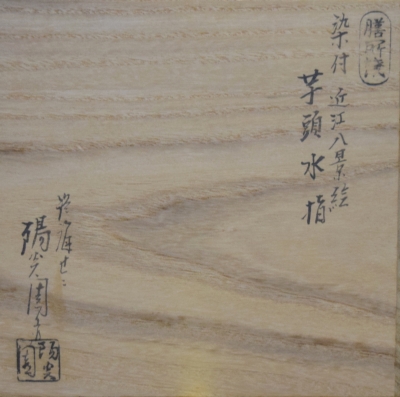 膳所焼
染付 近江八景絵
芋頭水指
陽炎園
陽炎園